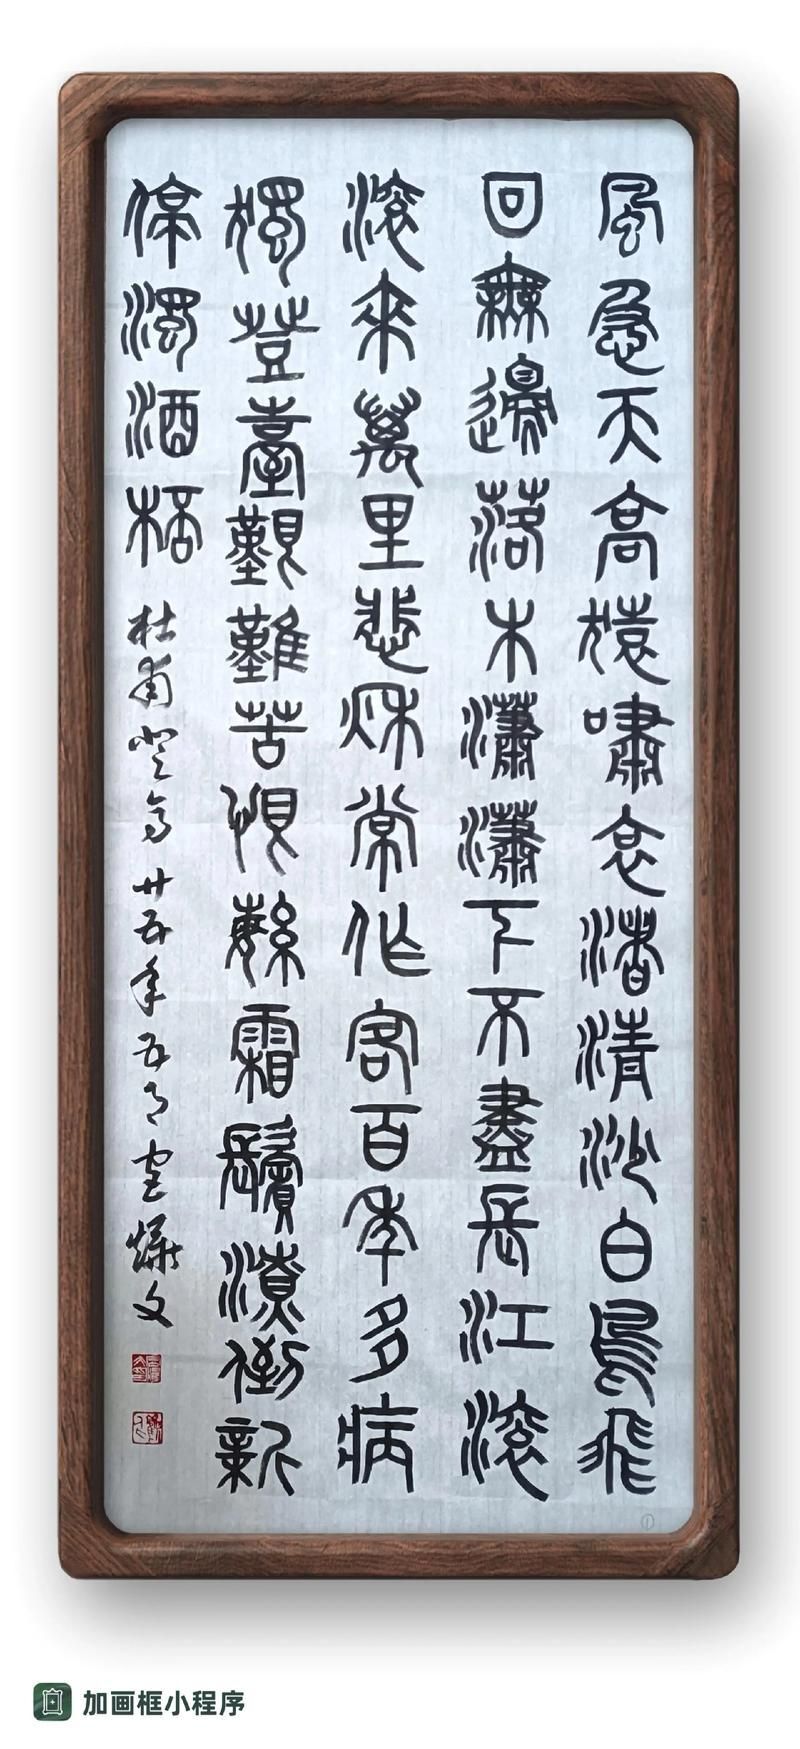 風急天高猿嘯哀渚清沙白鳥飛
回無邊落木瀟瀟下不盡長江滾
滾來萬里悲秋常作客百年多病
獨登臺艱難苦恨繁霜鬢潦倒新
停濁酒桮 杜甫登高 廿五年五月
加画框小程序